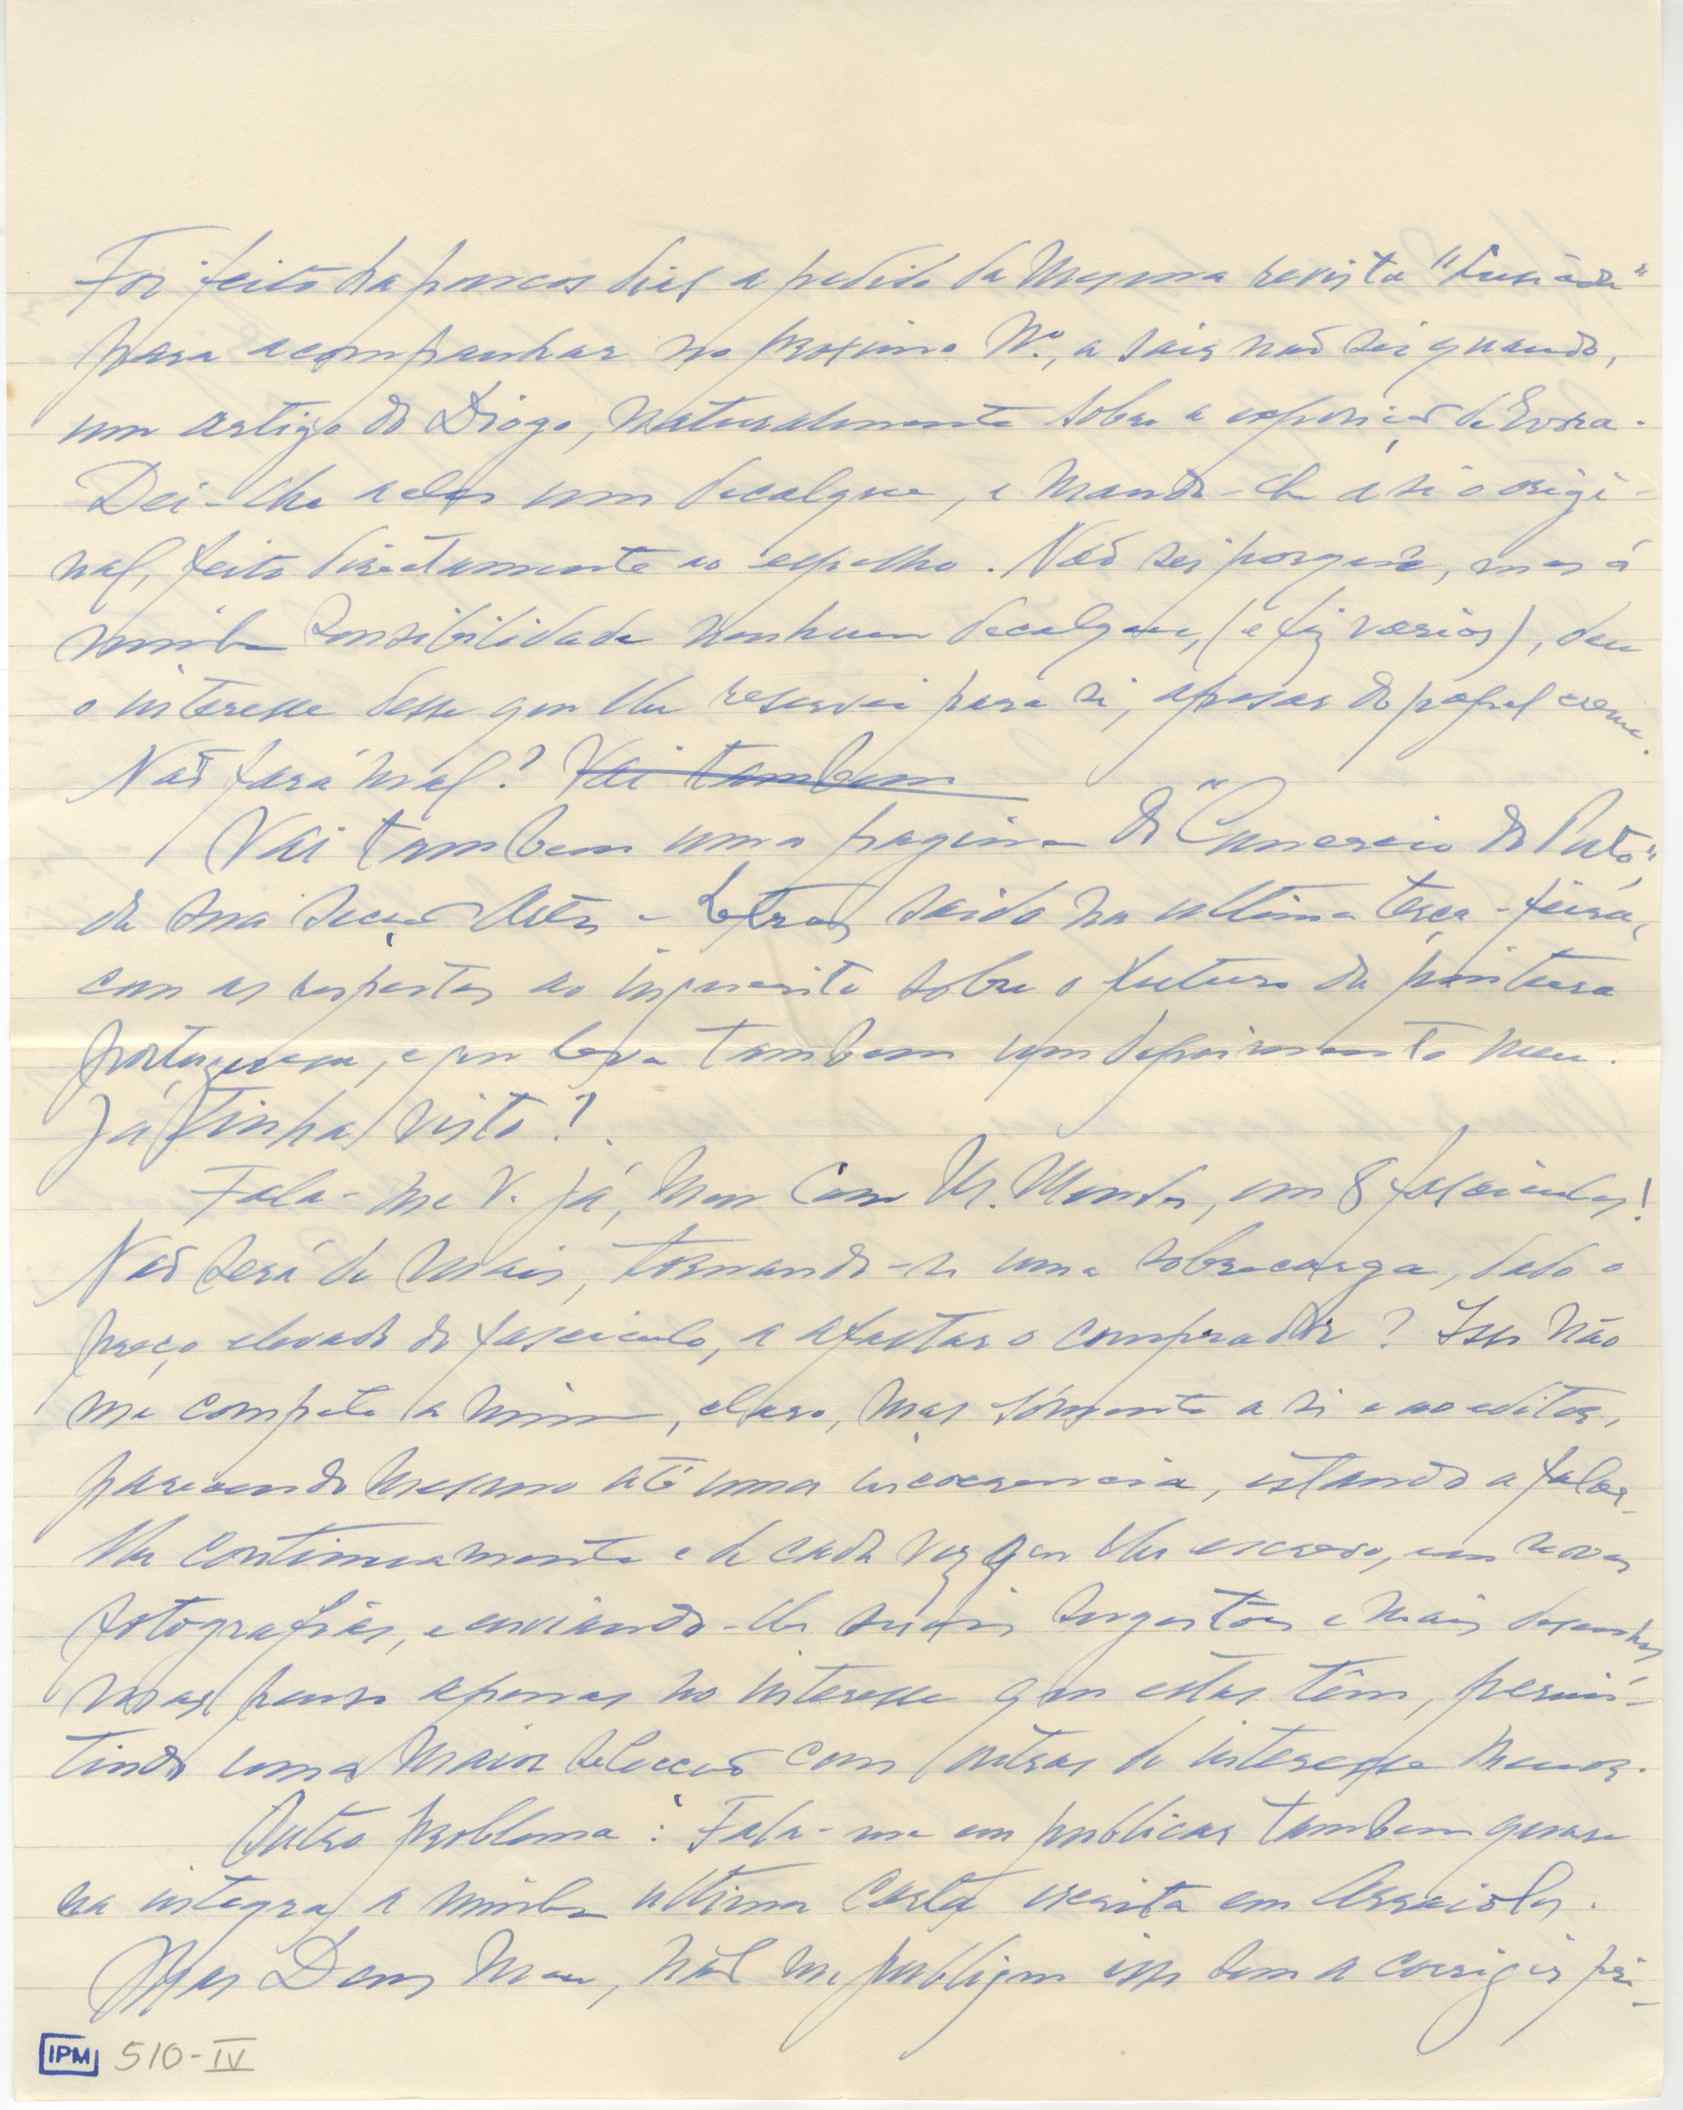 Foi feito ha poucos dias a pedido da mesma revista "Lusíada"
para acompanhar no proximo Nº., a sair não sei quando,
um artigo do Diogo, naturalmente sobre a exposição de Evora.
Dei-lhe a eles um decalque, e mando-lhe a si o origi-
nal, feito directamente ao espelho. Não sei porquê, mas á
minha sensibilidade nenhum decalque, (e fiz varios), deu
o interesse desse que lhe reservei para si, apesar do papel creme.
Não fará mal? Vai tambem
Vai tambem uma pagina do "Comercio do Porto,"
da sua secção Artes e Letras saida na ultima terça-feira,
com as respostas ao inquerito sobre o futuro da pintura
portuguesa, e que leva tambem um depoimento meu.
Já tinha visto?.
Fala-me V. já, meu Caro M. Mendes, em 8 fasciculos!
Não será de mais, tornando-se uma sobrecarga, dado o
preço elevado do fasciculo, a afastar o comprador? Isso não
me compete a mim, claro, mas sómente a si e ao editor,
parecendo mesmo até uma incoerencia, estando a falar-
lhe continuamente e de cada vez que lhe escrevo, em novas
fotografias, e enviando-lhe mais sugestões e mais desenhos,
mas penso apenas no interesse que estas têm, permi-
tindo uma maior selecção com outras de interesse menor.
Outro problema: Fala-me em publicar tambem quase
na integra a minha ultima carta escrita em Arraiolos.
Mas Deus meu, não me publique isso sem a corrigir pri-
IPM 510-IV